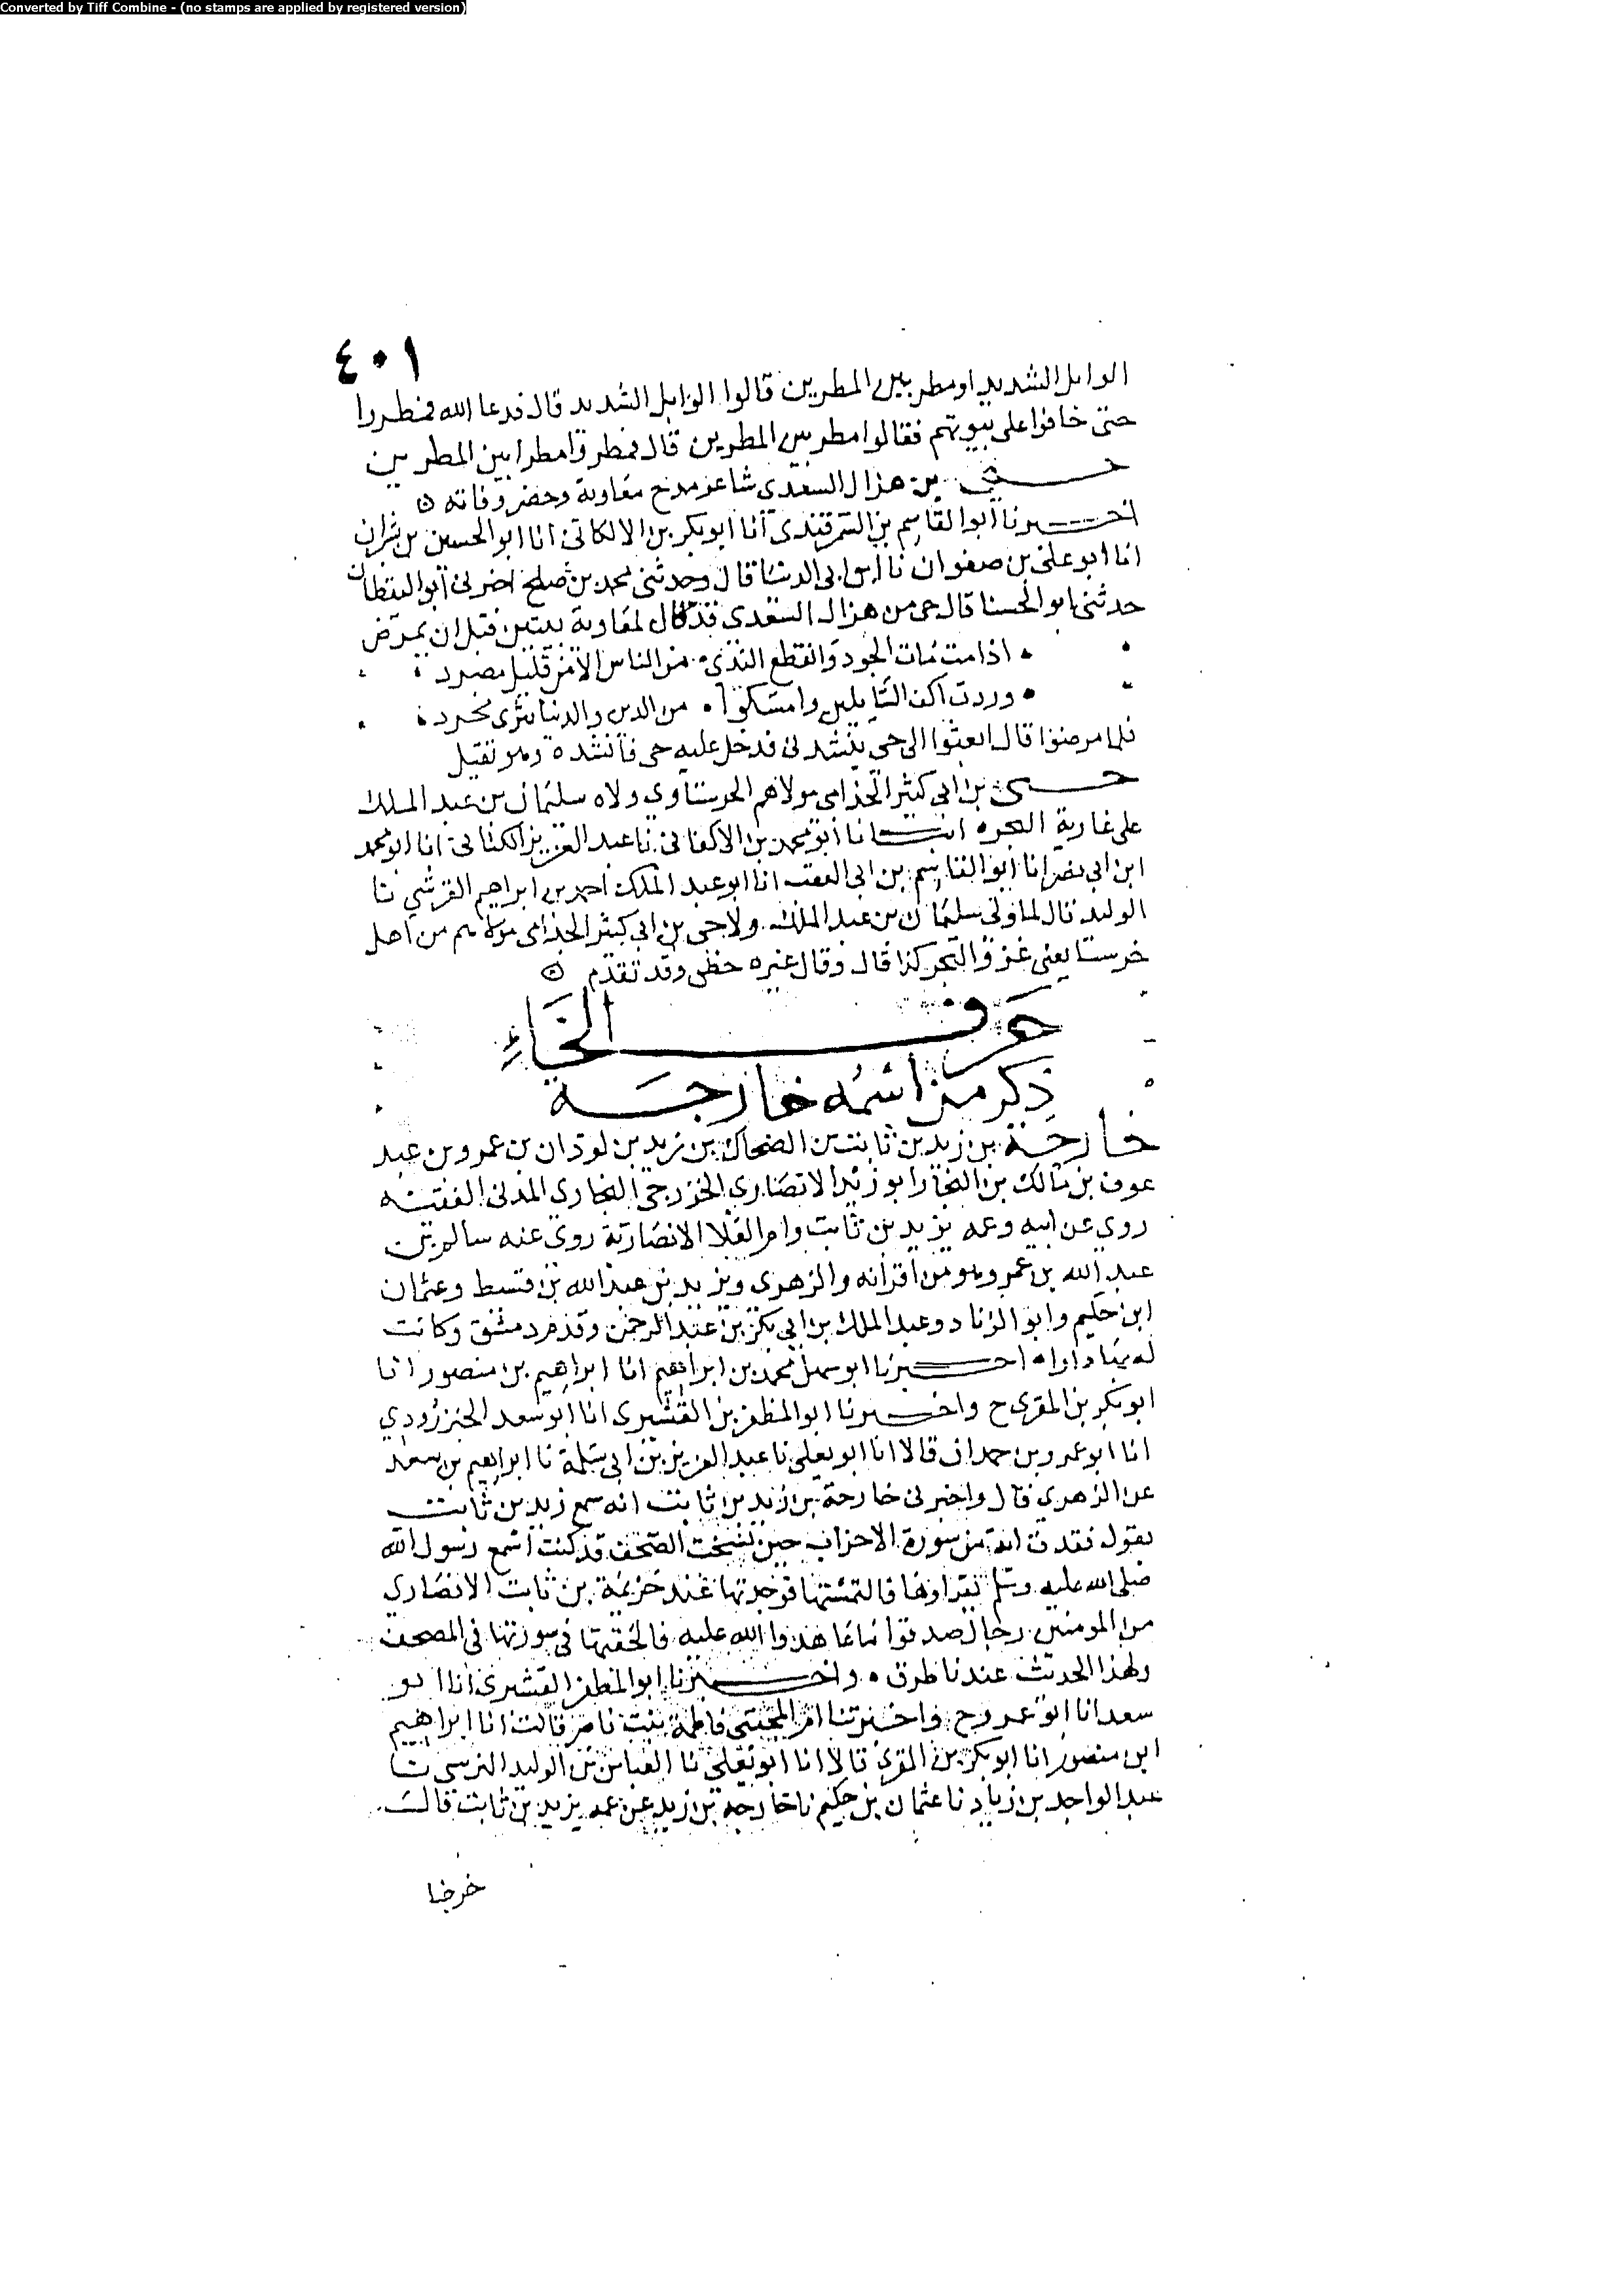 Converted by Tiff Combine - (no stamps are applied by registered version)
٤٠١
الوابل الشديد او مطر بين المطرين قالوا الوابل الشديد قال فدعا الله فمطروا
حتى خافوا على بيوتهم فقالوا مطر بين المطرين قال فمطروا مطرا بين المطرين
حـــي بن هزال السعدي شاعر مدح معاوية وحضر وفاته
اخـــبرنا ابوا القاسم بن السمرقندي انا ابو بكر بن الالكاتى انا ابو الحسين بن بشران
انا ابو على بن صفوان نا ابن ابى الدنيا قال وحدثنى محمد بن صلح اخبرنى ابو اليقظان
حدثنى ابو الحسنا قال حى من هزال السعدى قد قال لمعاوية بيتين قبل ان يمرض
اذا مت مات الجود وانقطع الندى من الناس الا من قليل مصرد
وردت اكف السايلين وامسكوا من الدين والدنيا بثرى مجرد
فلما مرضوا قال ابعثوا الى حى ينشدنى فدخل عليه حى فانشده وهو ثقيل
حـــى بن ابي كثير الجذامى مولاهم الحرستاوي ولاه سليمان بن عبد الملك
على غازية البحره انبـــانا ابو محمد بن الاكفانى نا عبد العزيز الكنانى انا ابو محمد
ابن ابي نصر انا ابو القاسم بن ابى العقب انا ابو عبد الملك احمد بن ابراهيم القرشي نا
الوليد قال لما ولى سليمان بن عبد الملك ولا حى بن ابي كثير الجذامى مولاهم من اهل
خرستا يعنى غزو البحر كذا قال وقال غيره حظى وقد تقدم
حرف الخاء
ذكر من اسمه خارجـــة
خارجـة بن زيد بن ثابت بن الضحاك بن زيد بن لوذان بن عمرو بن عبد
عوف بن مالك بن النجار ابو زيد الانصاري الخزرجي النجاري المدنى الفقيه
روي عن ابيه وعمه يزيد بن ثابت وام العلا الانصارية روى عنه سالم بن
عبد الله بن عمر وهو من اقرانه والزهرى ويزيد بن عبد الله بن قسيط وعثمان
ابن حكيم وابو الزناد وعبد الملك بن ابي بكر بن عبد الرحمن وقدم دمشق وكانت
له بها دارا اخـــبرنا ابو سهل محمد بن ابراهيم انا ابراهيم بن منصور انا
ابو بكر بن المقرى ح واخـــبرنا ابو المظفر بن القشيرى انا ابو سعد الجنزرودي
انا ابو عمرو بن حمدان قالا انا ابو يعلى نا عبد العزيز بن ابى سلمة نا ابراهيم بن سعد
عن الزهري قال واخبرنى خارجة بن زيد بن ثابت انه سمع زيد بن ثابت
يقول فقدت اية من سورة الاحزاب حين نسخت الصحف قد كنت اسمع رسول الله
صلى الله عليه وسلم يقراوها فالتمستها فوجدتها عند خزيمة بن ثابت الانصاري
من المومنين رجال صدقوا ما عاهدوا الله عليه فالحقتها فى سورتها فى المصحف
ولهذا الحديث عندنا طرق واخـــبرنا ابو المظفر القشيرى انا ابو
سعد انا ابو عمرو ح واخبرتنا ام المجتبى فاطمة بنت ناصر قالت انا ابراهيم
ابن منصور انا ابو بكر بن المقرئ قالا انا ابو يعلى نا العباس بن الوليد النرسى نا
عبد الواحد بن زياد نا عثمان بن حكيم نا خارجة بن زيد عن عمه يزيد بن ثابت قال
خرجنا